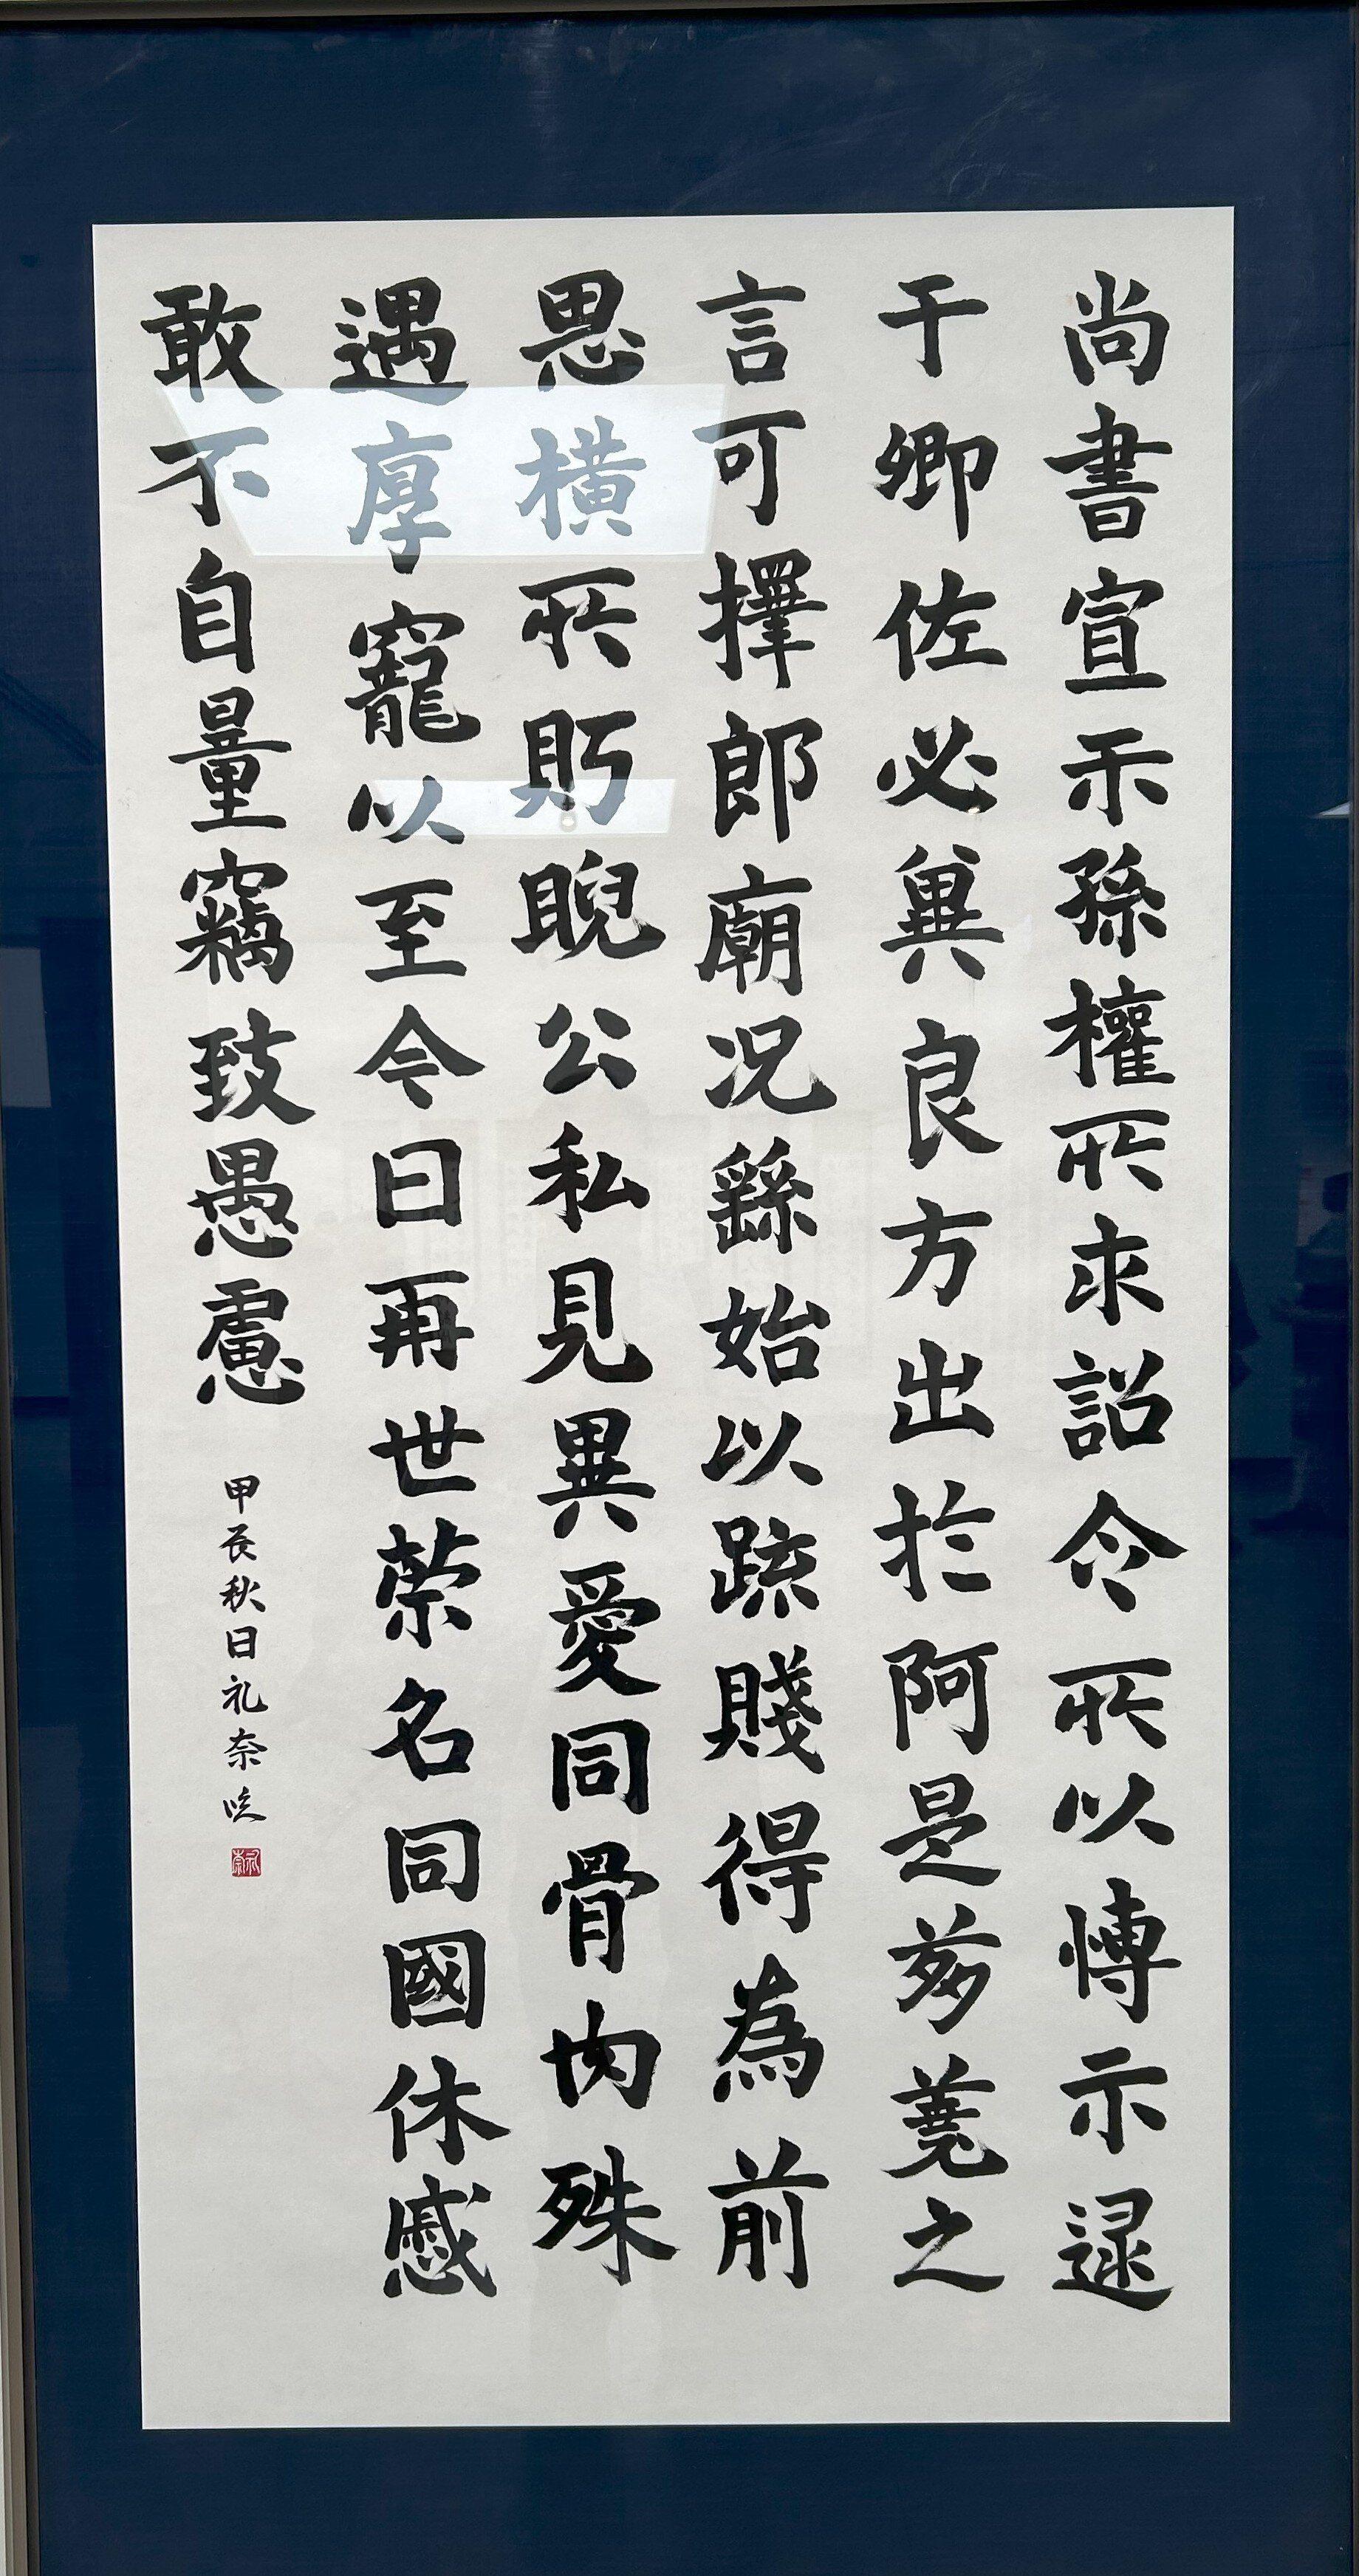 尚書宣示孫權所求詔令所以博示逮
于卿佐必冀良方出於阿是芻蕘之
言可擇郎廟况繇始以疏賤得為前
恩橫所眄睨公私見異愛同骨肉殊
遇厚寵以至今日再世榮名同國休慼
敢不自量竊致愚慮
甲辰秋日礼奈